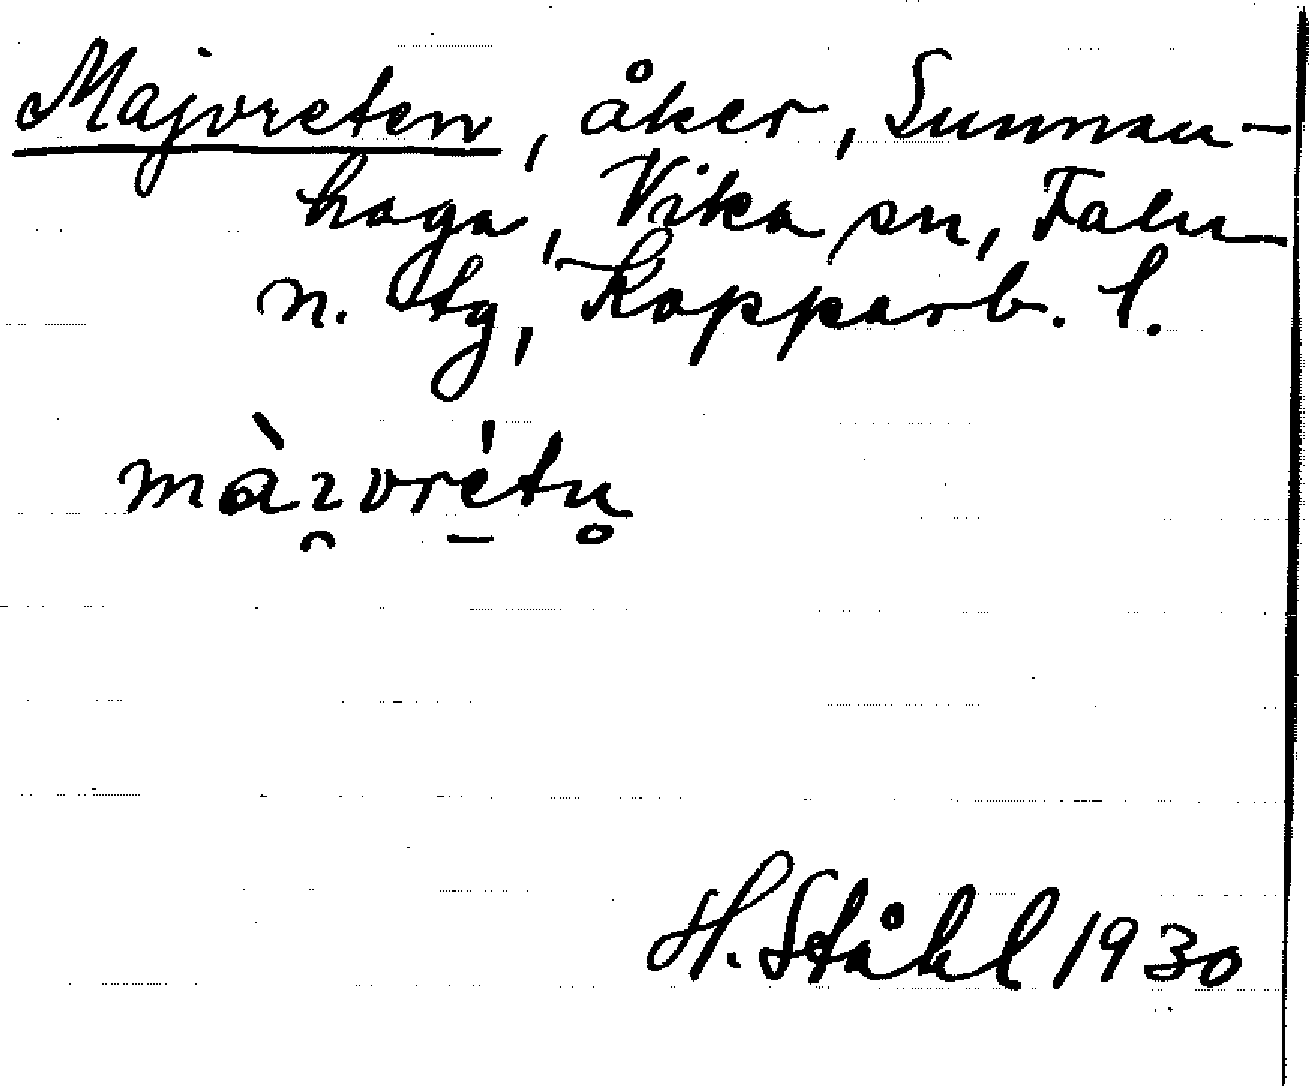 Majvreten, åker, Sunnan-
haga, Vika sn, Falu
n. tg, Kopparb. l.
màɪ̯vré̱tn̥
H. Ståhl 1930